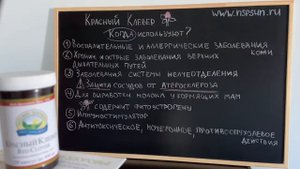 www.nspsun.ru
Красный Клевер
Когда используют?
① Воспалительные и аллергические заболевания кожи
② Хронич и острые заболевания верхних
дыхательных путей
③ Заболевания системы мочеотделения
⚠ Защита сосудов от Атеросклероза
④ Для выработки молока у кормящих мам
содержит фитоэстрогены
⑤ Иммуностимулятор
⑥ Антитоксическое, мочегонное, противоопухолевое
действия
Красный Клевер
Red Clover